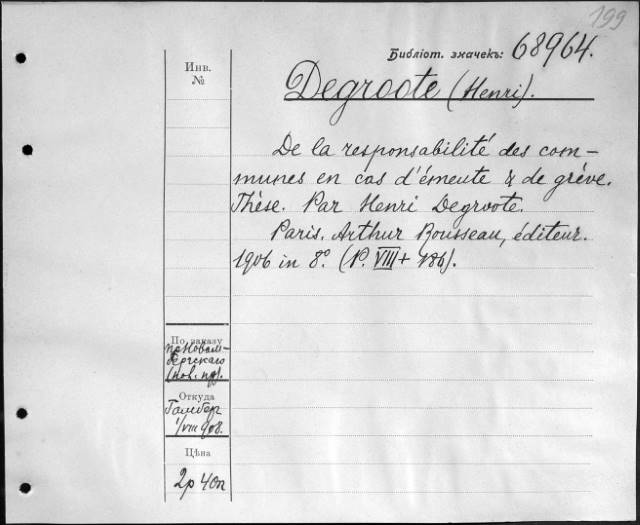 199
Библіот. значекъ: 68964.
Инв.
№
Degroote (Henri).
De la responsabilité des com-
munes en cas d'émeute & de grève.
Thèse. Par Henri Degroote.
Paris. Arthur Rousseau, éditeur.
1906 in 8° (P. VIII + 186).
По заказу
(нов. пр).
Откуда
1/VIII 908.
Цѣна
2р 40к